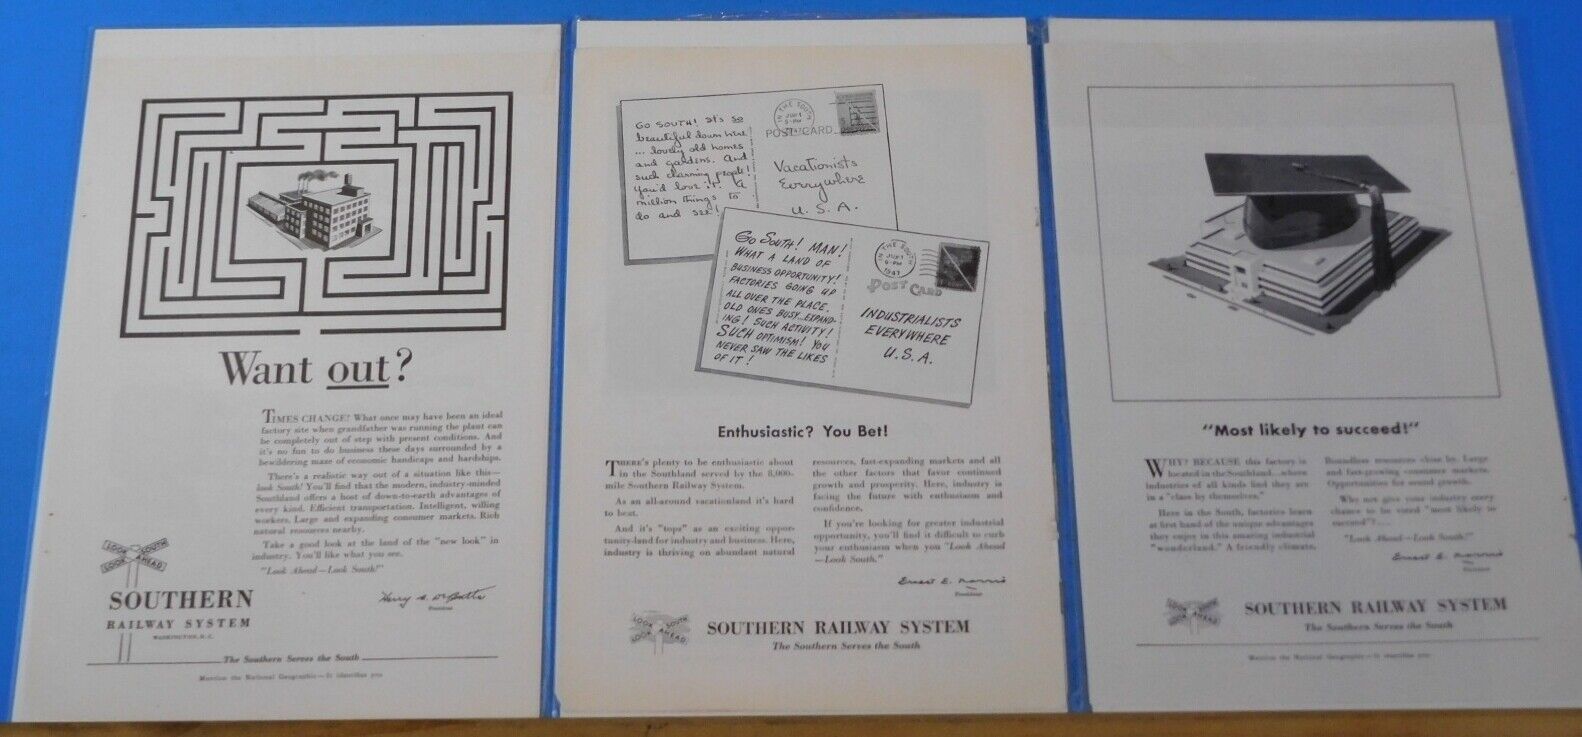 Want out?
TIMES CHANGE! What once may have been an ideal
factory site when grandfather was running the plant can
be completely out of step with present conditions. And
it's no fun to do business these days surrounded by a
bewildering maze of economic handicaps and hardships.
There's a realistic way out of a situation like this—
look South! You'll find that the modern, industry-minded
Southland offers a host of down-to-earth advantages of
every kind. Efficient transportation. Intelligent, willing
workers. Large and expanding consumer markets. Rich
natural resources nearby.
Take a good look at the land of the "new look" in
industry. You'll like what you see.
"Look Ahead—Look South!"
Harry A. DeButts
President
LOOK SOUTH
LOOK AHEAD
SOUTHERN
RAILWAY SYSTEM
WASHINGTON, D.C.
The Southern Serves the South
Mention the National Geographic—It identifies you
GO SOUTH! It's so
beautiful down here
... lovely old homes
and gardens. And
such charming people!
You'd love it. A
million things to
do and see!
IN THE SOUTH
JUN 1
5-PM
POST CARD
Vacationists
Everywhere
U.S.A.
GO SOUTH! MAN!
WHAT A LAND OF
BUSINESS OPPORTUNITY!
FACTORIES GOING UP
ALL OVER THE PLACE.
OLD ONES BUSY...EXPAND-
ING! SUCH ACTIVITY!
SUCH OPTIMISM! YOU
NEVER SAW THE LIKES
OF IT!
IN THE SOUTH
JUN 1
6-PM
1947
POST CARD
INDUSTRIALISTS
EVERYWHERE
U.S.A.
Enthusiastic? You Bet!
THERE'S plenty to be enthusiastic about
in the Southland served by the 8,000-
mile Southern Railway System.
As an all-around vacationland it's hard
to beat.
And it's "tops" as an exciting oppor-
tunity-land for industry and business. Here,
industry is thriving on abundant natural
resources, fast-expanding markets and all
the other factors that favor continued
growth and prosperity. Here, industry is
facing the future with enthusiasm and
confidence.
If you're looking for greater industrial
opportunity, you'll find it difficult to curb
your enthusiasm when you "Look Ahead
—Look South."
Ernest E. Norris
President
LOOK SOUTH
LOOK AHEAD
SOUTHERN RAILWAY SYSTEM
The Southern Serves the South
"Most likely to succeed!"
WHY? BECAUSE this factory is
located in the Southland...where
industries of all kinds find they are
in a "class by themselves."
Here in the South, factories learn
at first hand of the unique advantages
they enjoy in this amazing industrial
"wonderland." A friendly climate.
Boundless resources close by. Large
and fast-growing consumer markets.
Opportunities for sound growth.
Why not give your industry every
chance to be voted "most likely to
succeed"?...
"Look Ahead—Look South!"
Ernest E. Norris
President
LOOK SOUTH
LOOK AHEAD
SOUTHERN RAILWAY SYSTEM
The Southern Serves the South
Mention the National Geographic—It identifies you